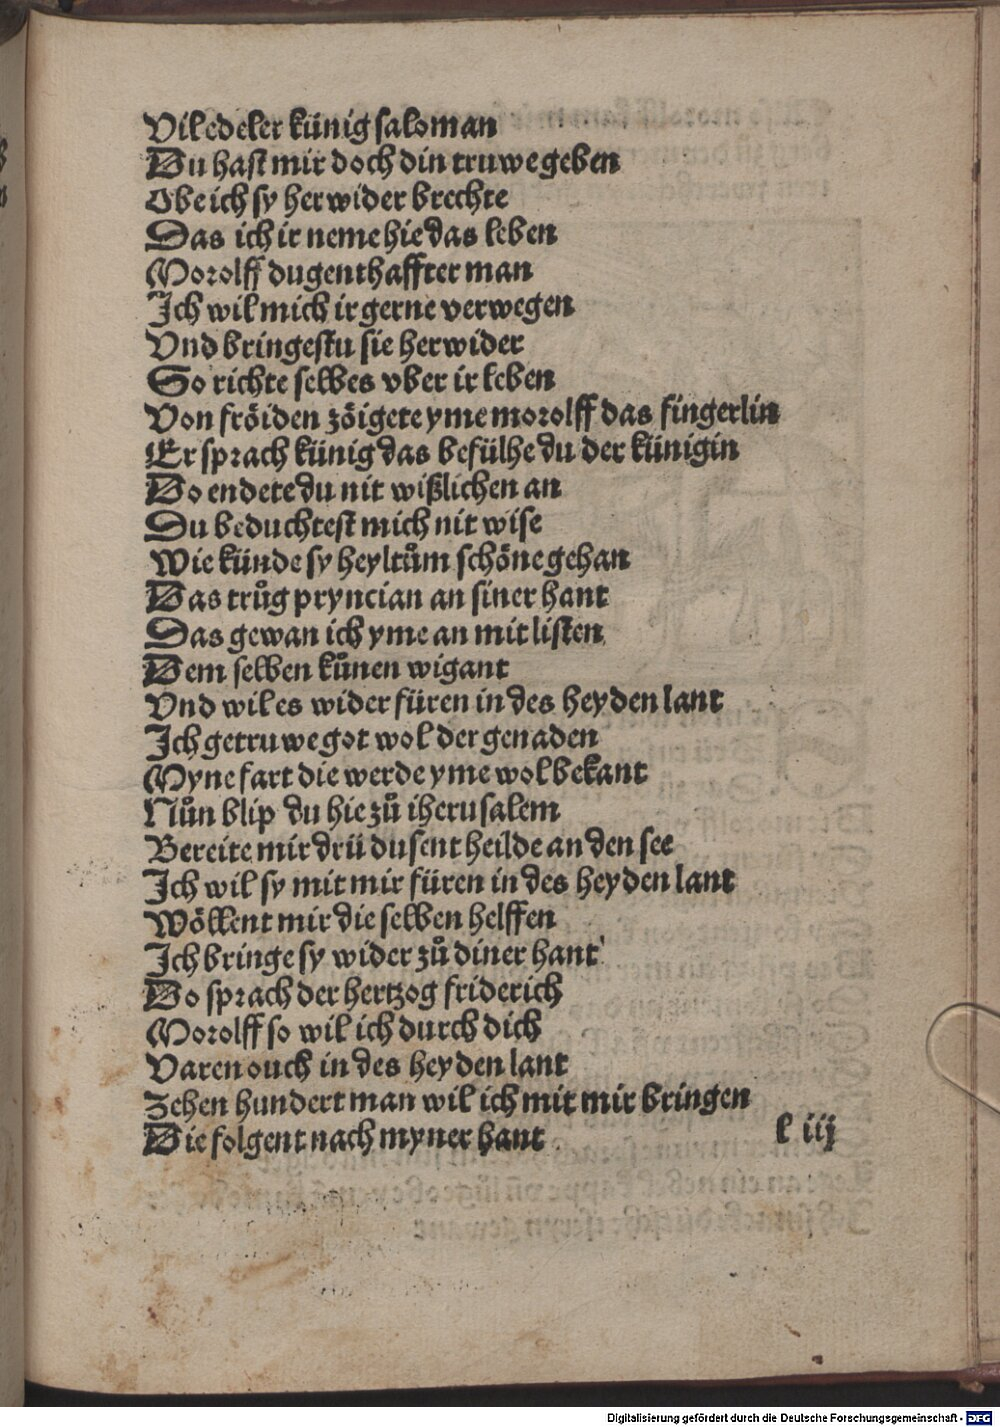 Vil edeler künig saloman
Du hast mir doch din truwe geben
Obe ich sy her wider brechte
Das ich ir neme hie das leben
Morolff dugenthaffter man
Ich wil mich ir gerne verwegen
Vnd bringestu sie herwider
So richte selbes vber ir leben
Von fröiden zöigete yme morolff das fingerlin
Er sprach künig das befülhe du der künigin
Do endete du nit wißlichen an
Du beduchtest mich nit wise
Wie künde sy heyltům schöne gehan
Das trůg pryncian an siner hant
Das gewan ich yme an mit listen
Dem selben kůnen wigant
Vnd wil es wider füren in des heyden lant
Ich getruwe got wol der genaden
Myne fart die werde yme wol bekant
Nůn blip du hie zů iherusalem
Bereite mir drü dusent heilde an den see
Ich wil sy mit mir füren in des heyden lant
Wöllent mir die selben helffen
Ich bringe sy wider zů diner hant
Do sprach der hertzog friderich
Morolff so wil ich durch dich
Varen ouch in des heyden lant
Zehen hundert man wil ich mit mir bringen
Die folgent nach myner hant
l iij
Digitalisierung gefördert durch die Deutsche Forschungsgemeinschaft - DFG